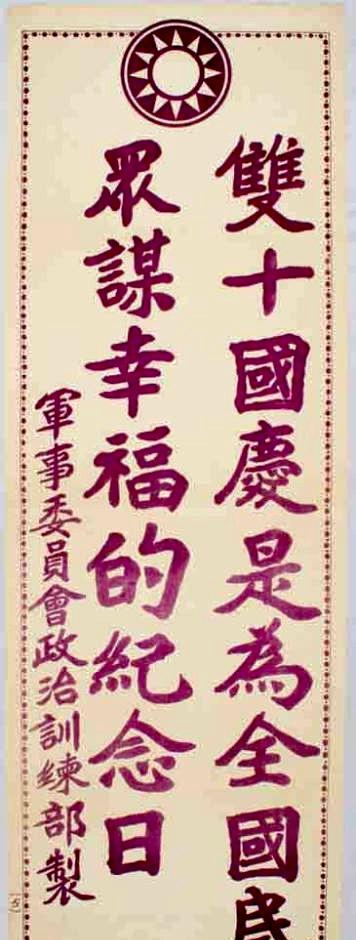 雙十國慶是為全國民
眾謀幸福的紀念日
軍事委員會政治訓練部製